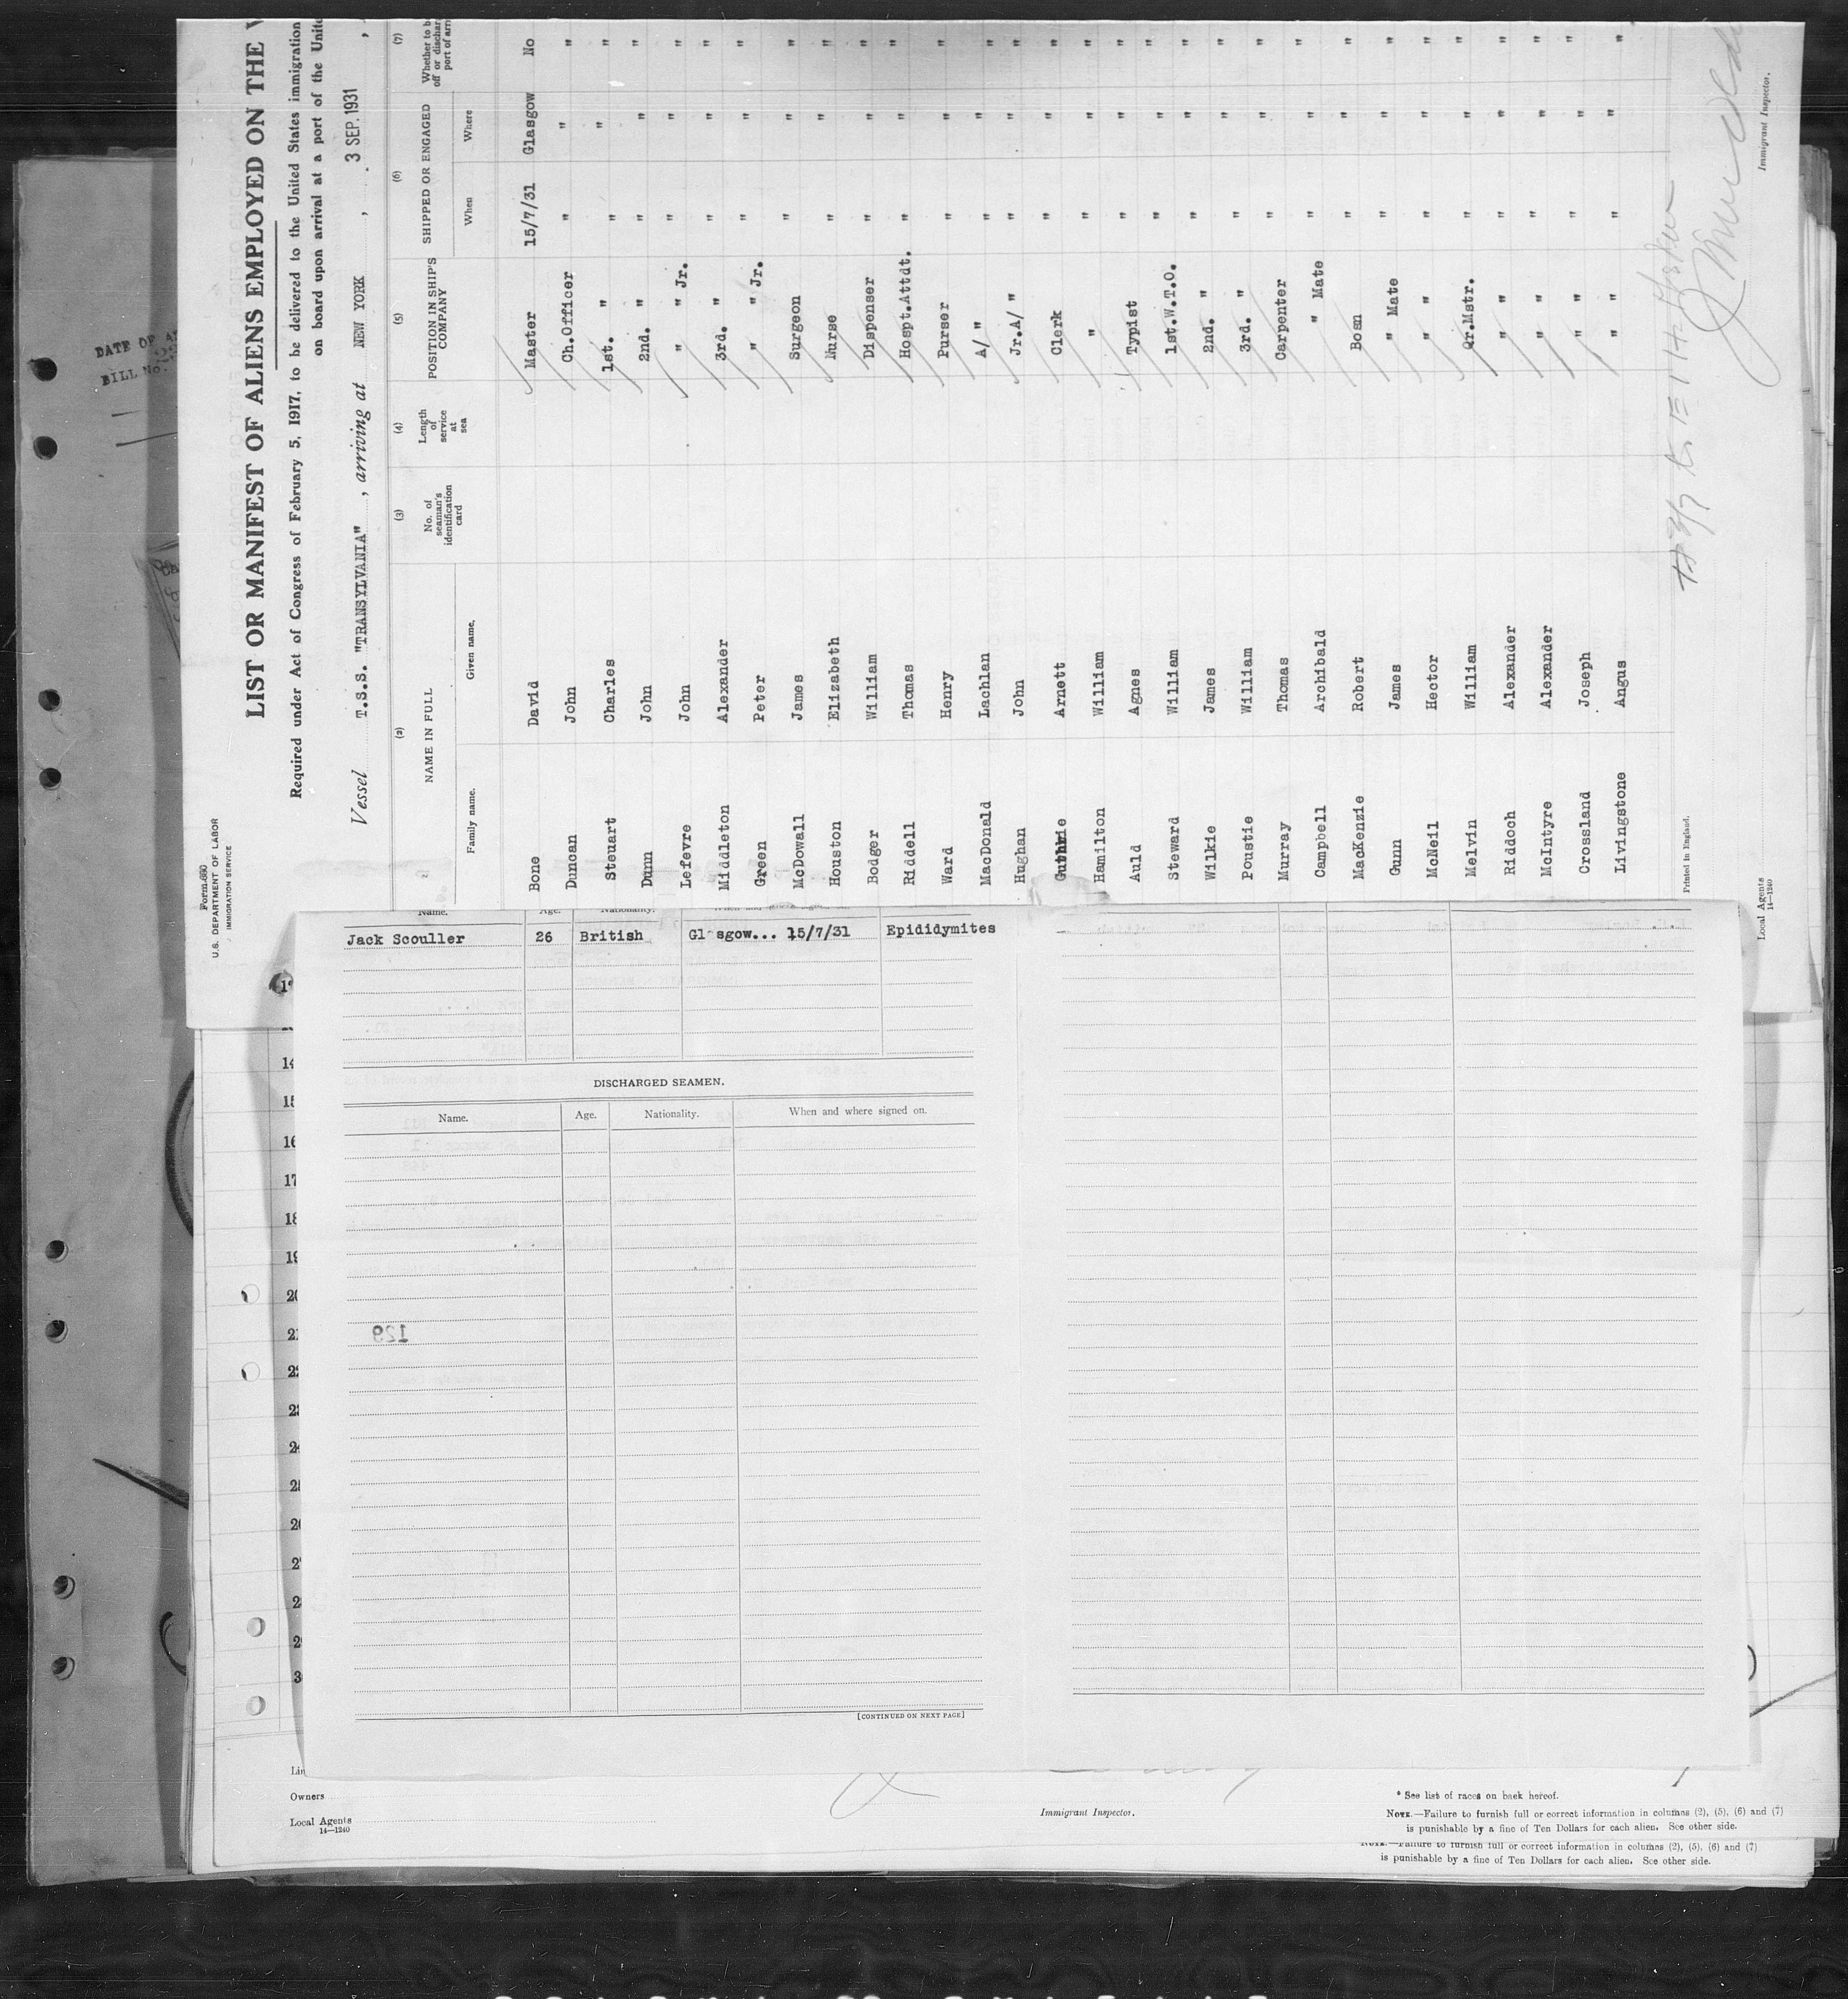 Form 680
U.S. DEPARTMENT OF LABOR
IMMIGRATION SERVICE
LIST OR MANIFEST OF ALIENS EMPLOYED ON THE
Required under Act of Congress of February 5, 1917, to be delivered to the United States immigration
on board upon arrival at a port of the Unite
Vessel T.S.S. "TRANSYLVANIA", arriving at NEW YORK, 3 SEP. 1931,
(2) (3) (4) (5) (6) (7)
NAME IN FULL No. of seaman's identification card Length of service at sea POSITION IN SHIP'S COMPANY SHIPPED OR ENGAGED Whether to b off or dischar port of arr
Family name. Given name. When Where
Bone David Master 15/7/31 Glasgow No
Duncan John Ch.Officer " " "
Steuart Charles 1st. " " " "
Dunn John 2nd. " " " "
Lefevre John " " Jr. " " "
Middleton Alexander 3rd. " " " "
Green Peter " " Jr. " " "
McDowall James Surgeon " " "
Houston Elizabeth Nurse " " "
Bodger William Dispenser " " "
Riddell Thomas Hospt.Attdt. " " "
Ward Henry Purser " " "
MacDonald Lachlan A/ " " " "
Hughan John Jr.A/ " " " "
Guthrie Arnett Clerk " " "
Hamilton William " " " "
Auld Agnes Typist " " "
Steward William 1st.W.T.O. " " "
Wilkie James 2nd. " " " "
Poustie William 3rd. " " " "
Murray Thomas Carpenter " " "
Campbell Archibald " Mate " " "
MacKenzie Robert Bosn " " "
Gunn James " Mate " " "
McNeil Hector " " " " "
Melvin William Qr.Mstr. " " "
Riddoch Alexander " " " " "
McIntyre Alexander " " " " "
Crossland Joseph " " " " "
Livingstone Angus " " " " "
Printed in England.
Local Agents
14—1240
Immigrant Inspector.
DATE OF
BILL No.
Name. Age. Nationality.
Jack Scouller 26 British Gl sgow... 15/7/31 Epididymites
DISCHARGED SEAMEN.
Name. Age. Nationality. When and where signed on.
129
[CONTINUED ON NEXT PAGE]
14
15
16
17
18
19
20
21
22
23
24
25
26
Owners
Local Agents
14—1240
Immigrant Inspector.
* See list of races on back hereof.
NOTE.—Failure to furnish full or correct information in columns (2), (5), (6) and (7)
is punishable by a fine of Ten Dollars for each alien. See other side.
NOTE.—Failure to furnish full or correct information in columns (2), (5), (6) and (7)
is punishable by a fine of Ten Dollars for each alien. See other side.